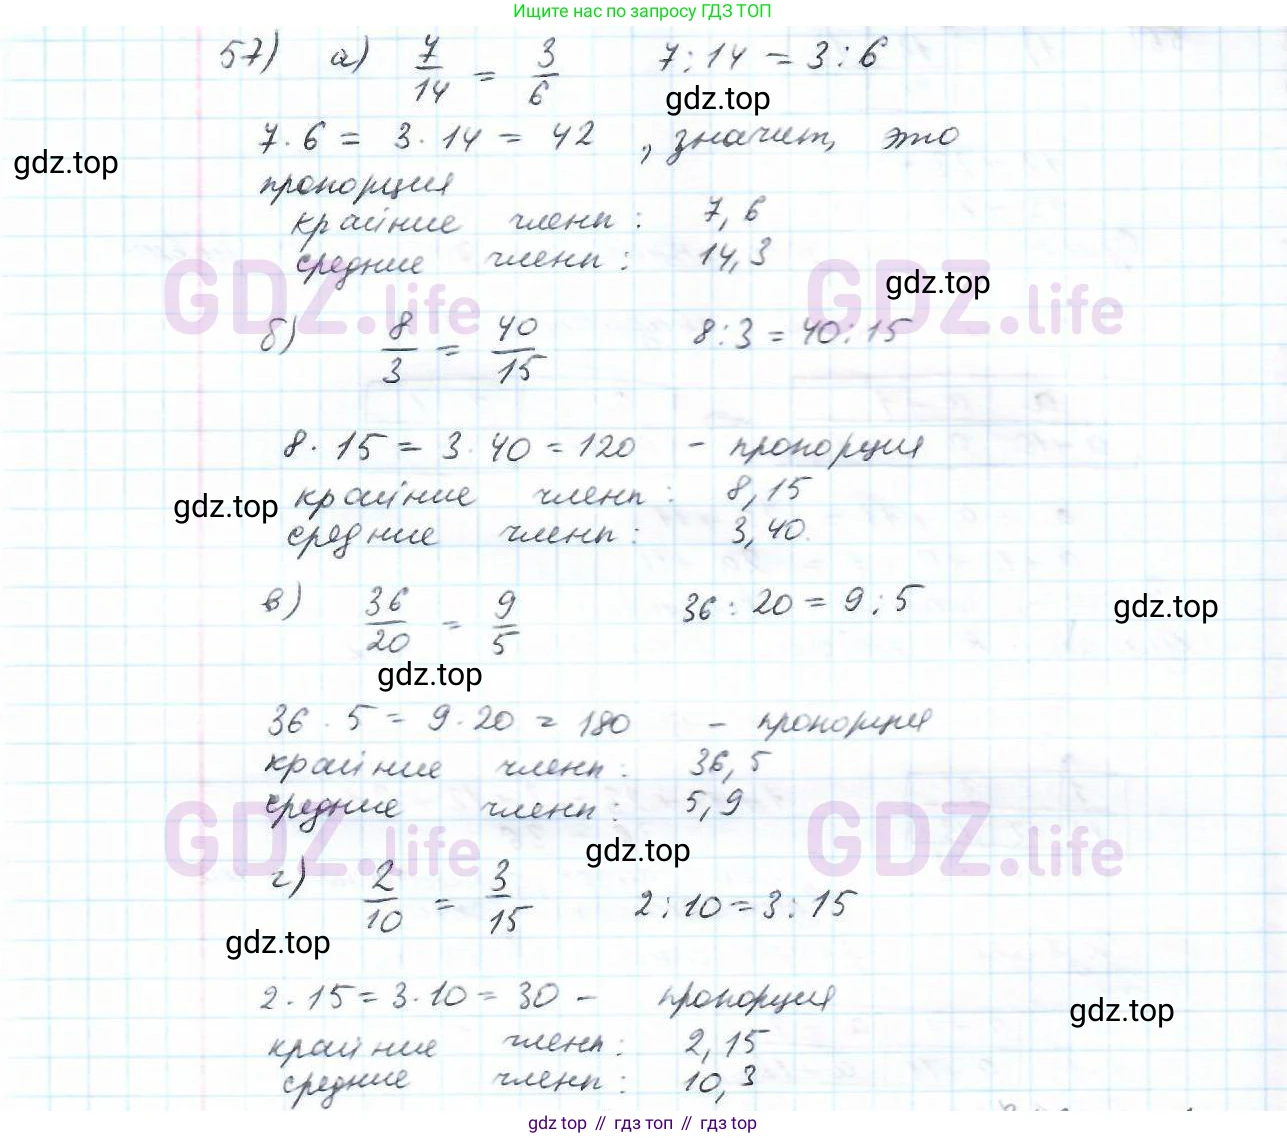 Ищите нас по запросу ГДЗ ТОП
57) а) 7/14 = 3/6 7:14 = 3:6
gdz.top
7·6 = 3·14 = 42 , значит, это
gdz.top
пропорция
крайние члены: 7, 6
средние члены: 14, 3
GDZ.life GDZ.life
gdz.top
б) 8/3 = 40/15 8:3 = 40:15
8·15 = 3·40 = 120 - пропорция
крайние члены: 8, 15
gdz.top
средние члены: 3, 40.
в) 36/20 = 9/5 36:20 = 9:5
gdz.top
gdz.top
36·5 = 9·20 = 180 - пропорция
крайние члены: 36, 5
средние члены: 5, 9
GDZ.life GDZ.life
gdz.top
г) 2/10 = 3/15 2:10 = 3:15
gdz.top
2·15 = 3·10 = 30 - пропорция
gdz.top
крайние члены: 2, 15
средние члены: 10, 3
gdz.top // гдз топ // gdz top